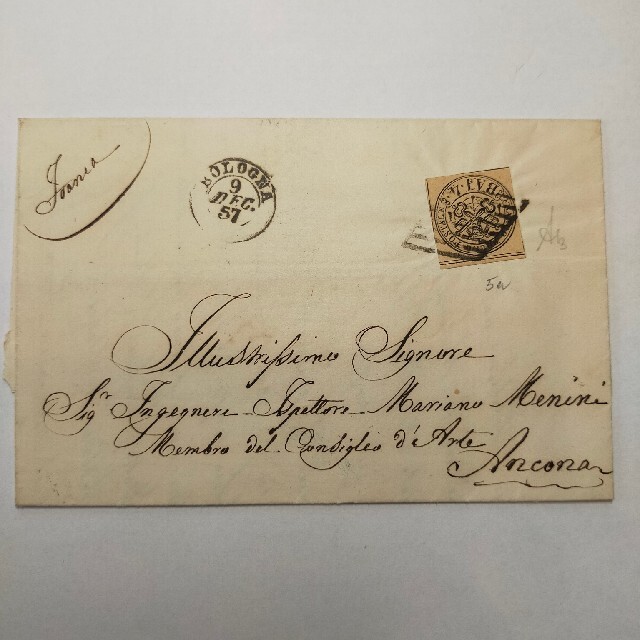 Franca
BOLOGNA
9
DEC.
57
5a
Illustrissimo Signore
Sigr Ingegnere Ispettore Mariano Menini
Membro del Consiglio d'Arte
Ancona